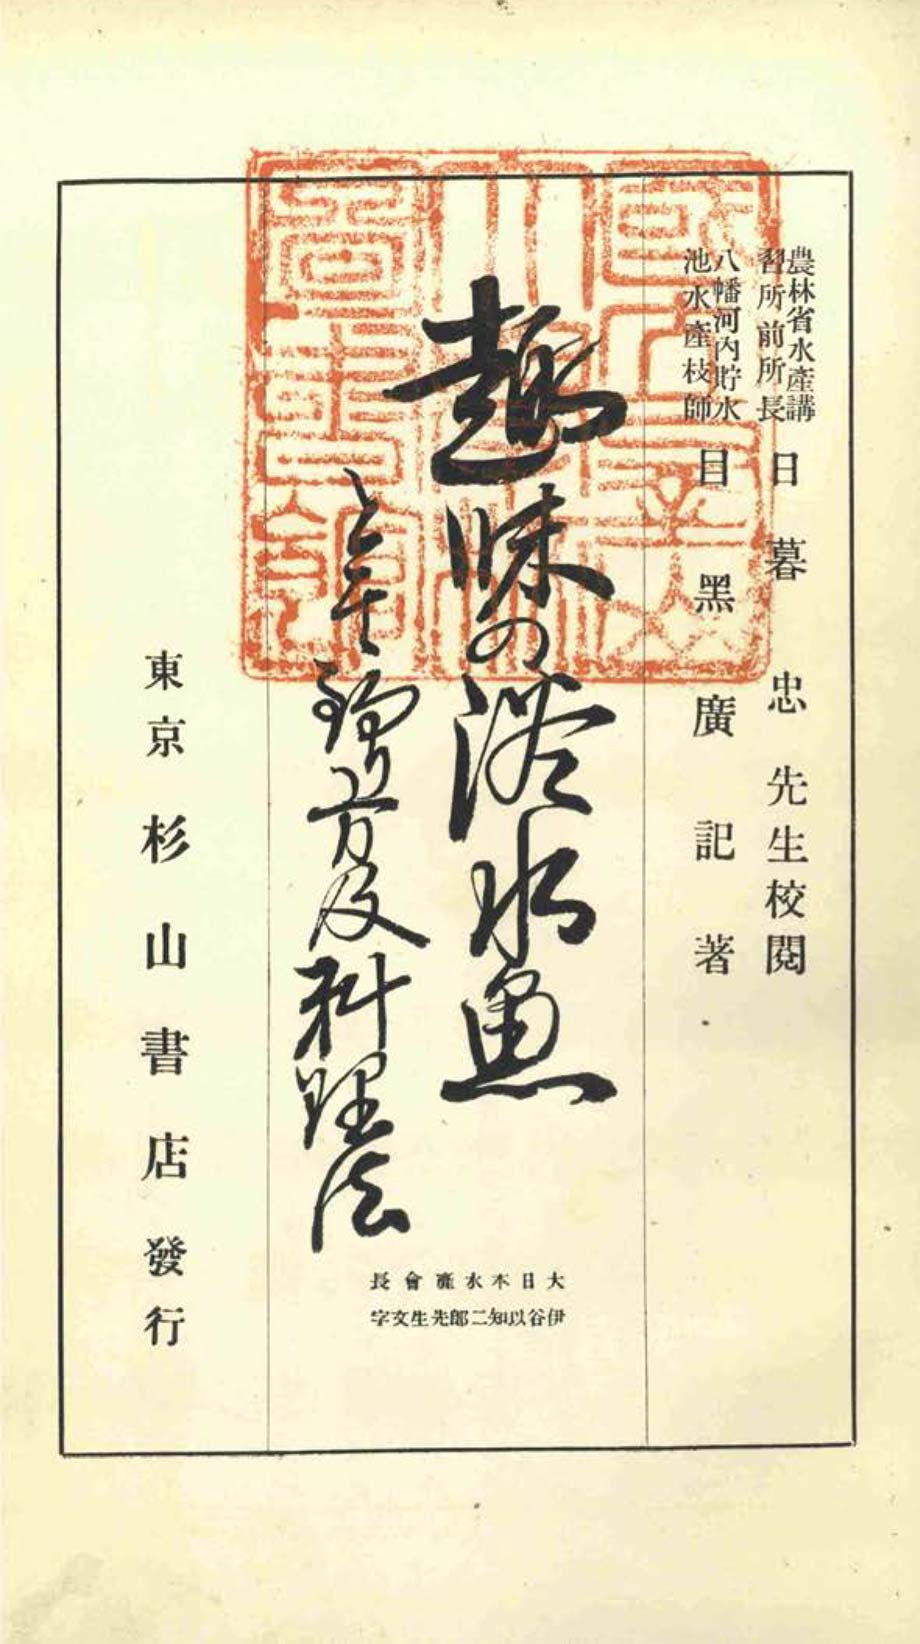 農林省水產講
習所前所長
日暮忠先生校閱
八幡河內貯水
池水產枝師
目黑廣記著
趣味の淡水魚
釣り方及料理法
大日本水產會長
伊谷以知二郎先生文字
東京 杉山書店發行